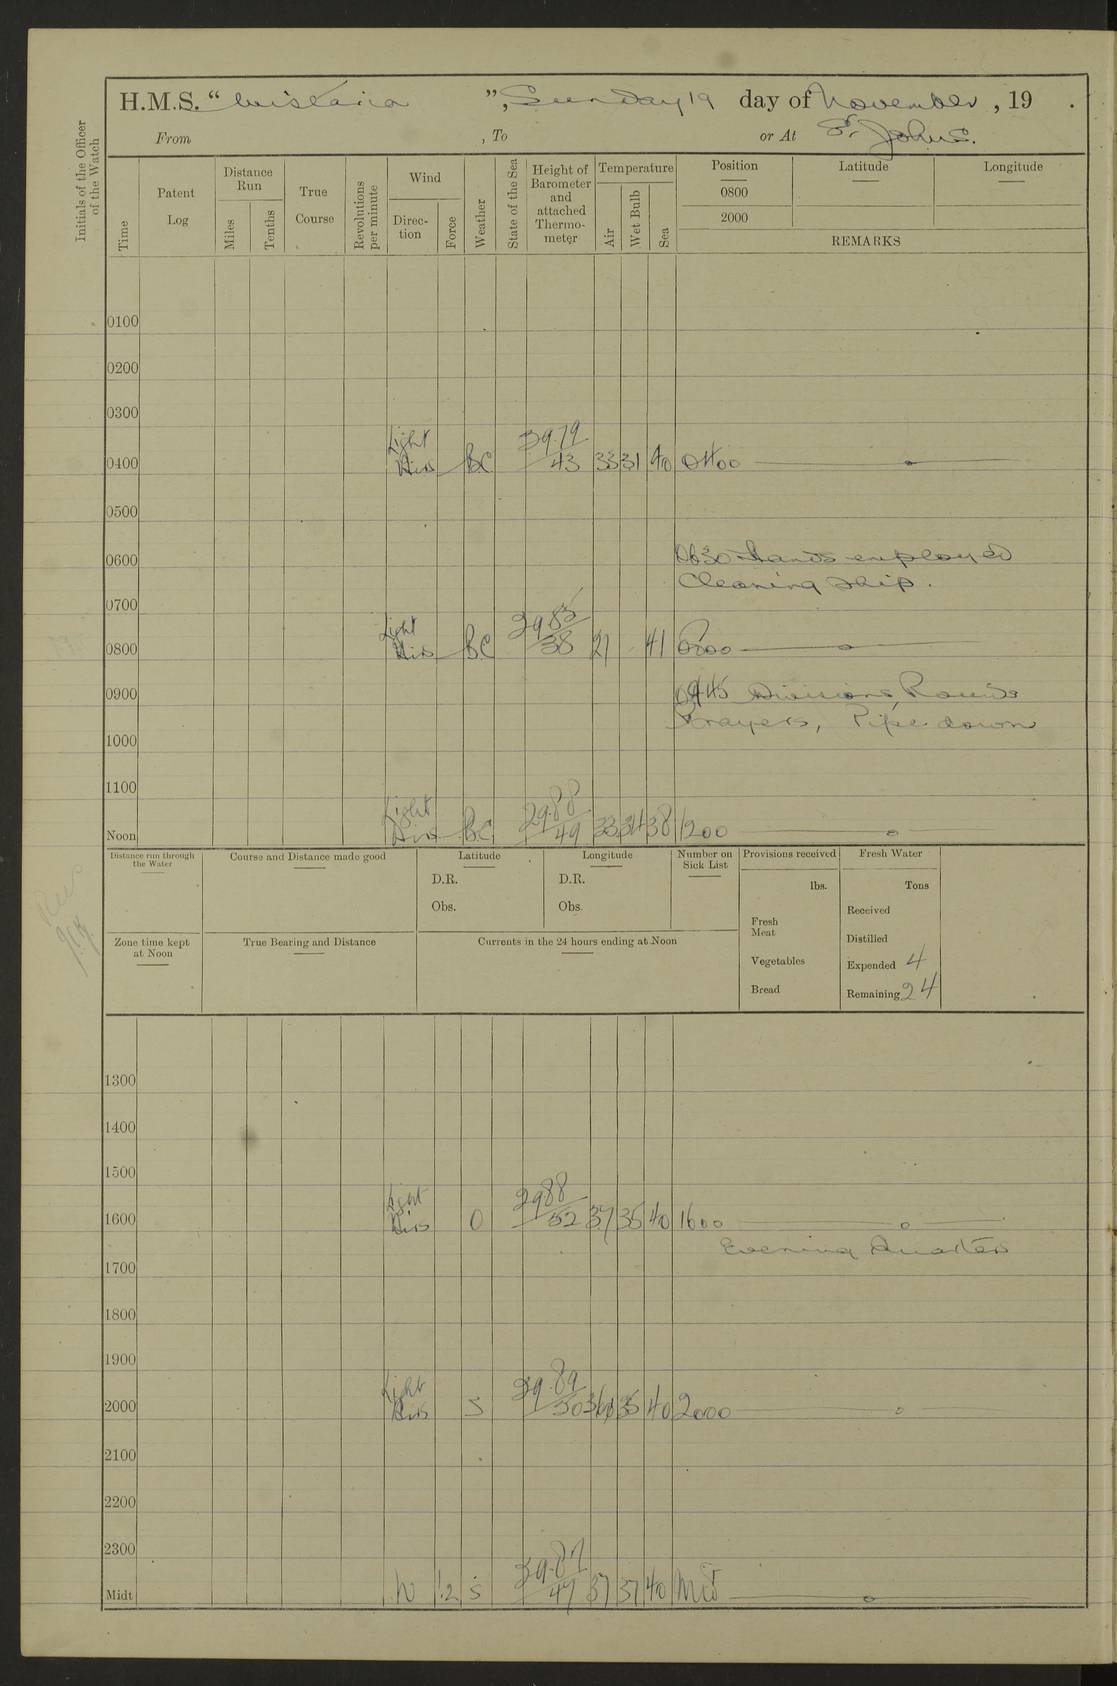 H.M.S. "Wistaria", Sunday 19 day of November, 19 .
From , To or At St. Johns.
Initials of the Officer of the Watch
Time
Patent Log
Distance Run
Miles
Tenths
True Course
Revolutions per minute
Wind
Direction
Force
Weather
State of the Sea
Height of Barometer and attached Thermometer
Temperature
Air
Wet Bulb
Sea
Position
0800
2000
Latitude
Longitude
REMARKS
0100
0200
0300
0400 Light Airs BC 29.79 43 33 31 40 0400
0500
0600 0630 Hands employed
Cleaning ship.
0700
0800 Light Airs BC 29 85 38 41 0800
0900 0945 Divisions, Rounds
Prayers, Pipe down
1000
1100
Noon Light Airs BC 29.88 49 33 34 38 1200
Distance run through the Water
Course and Distance made good
Latitude
D.R.
Obs.
Longitude
D.R.
Obs.
Number on Sick List
Provisions received
lbs.
Fresh Meat
Vegetables
Bread
Fresh Water
Tons
Received
Distilled
Expended 4
Remaining 24
Zone time kept at Noon
True Bearing and Distance
Currents in the 24 hours ending at Noon
1300
1400
1500
1600 Light Airs O 29 88 52 37 35 40 1600
Evening Quarters
1700
1800
1900
2000 Light Airs S 29.89 50 36 35 40 2000
2100
2200
2300
Midt W 1.2 S 29.87 47 37 37 40 Mid